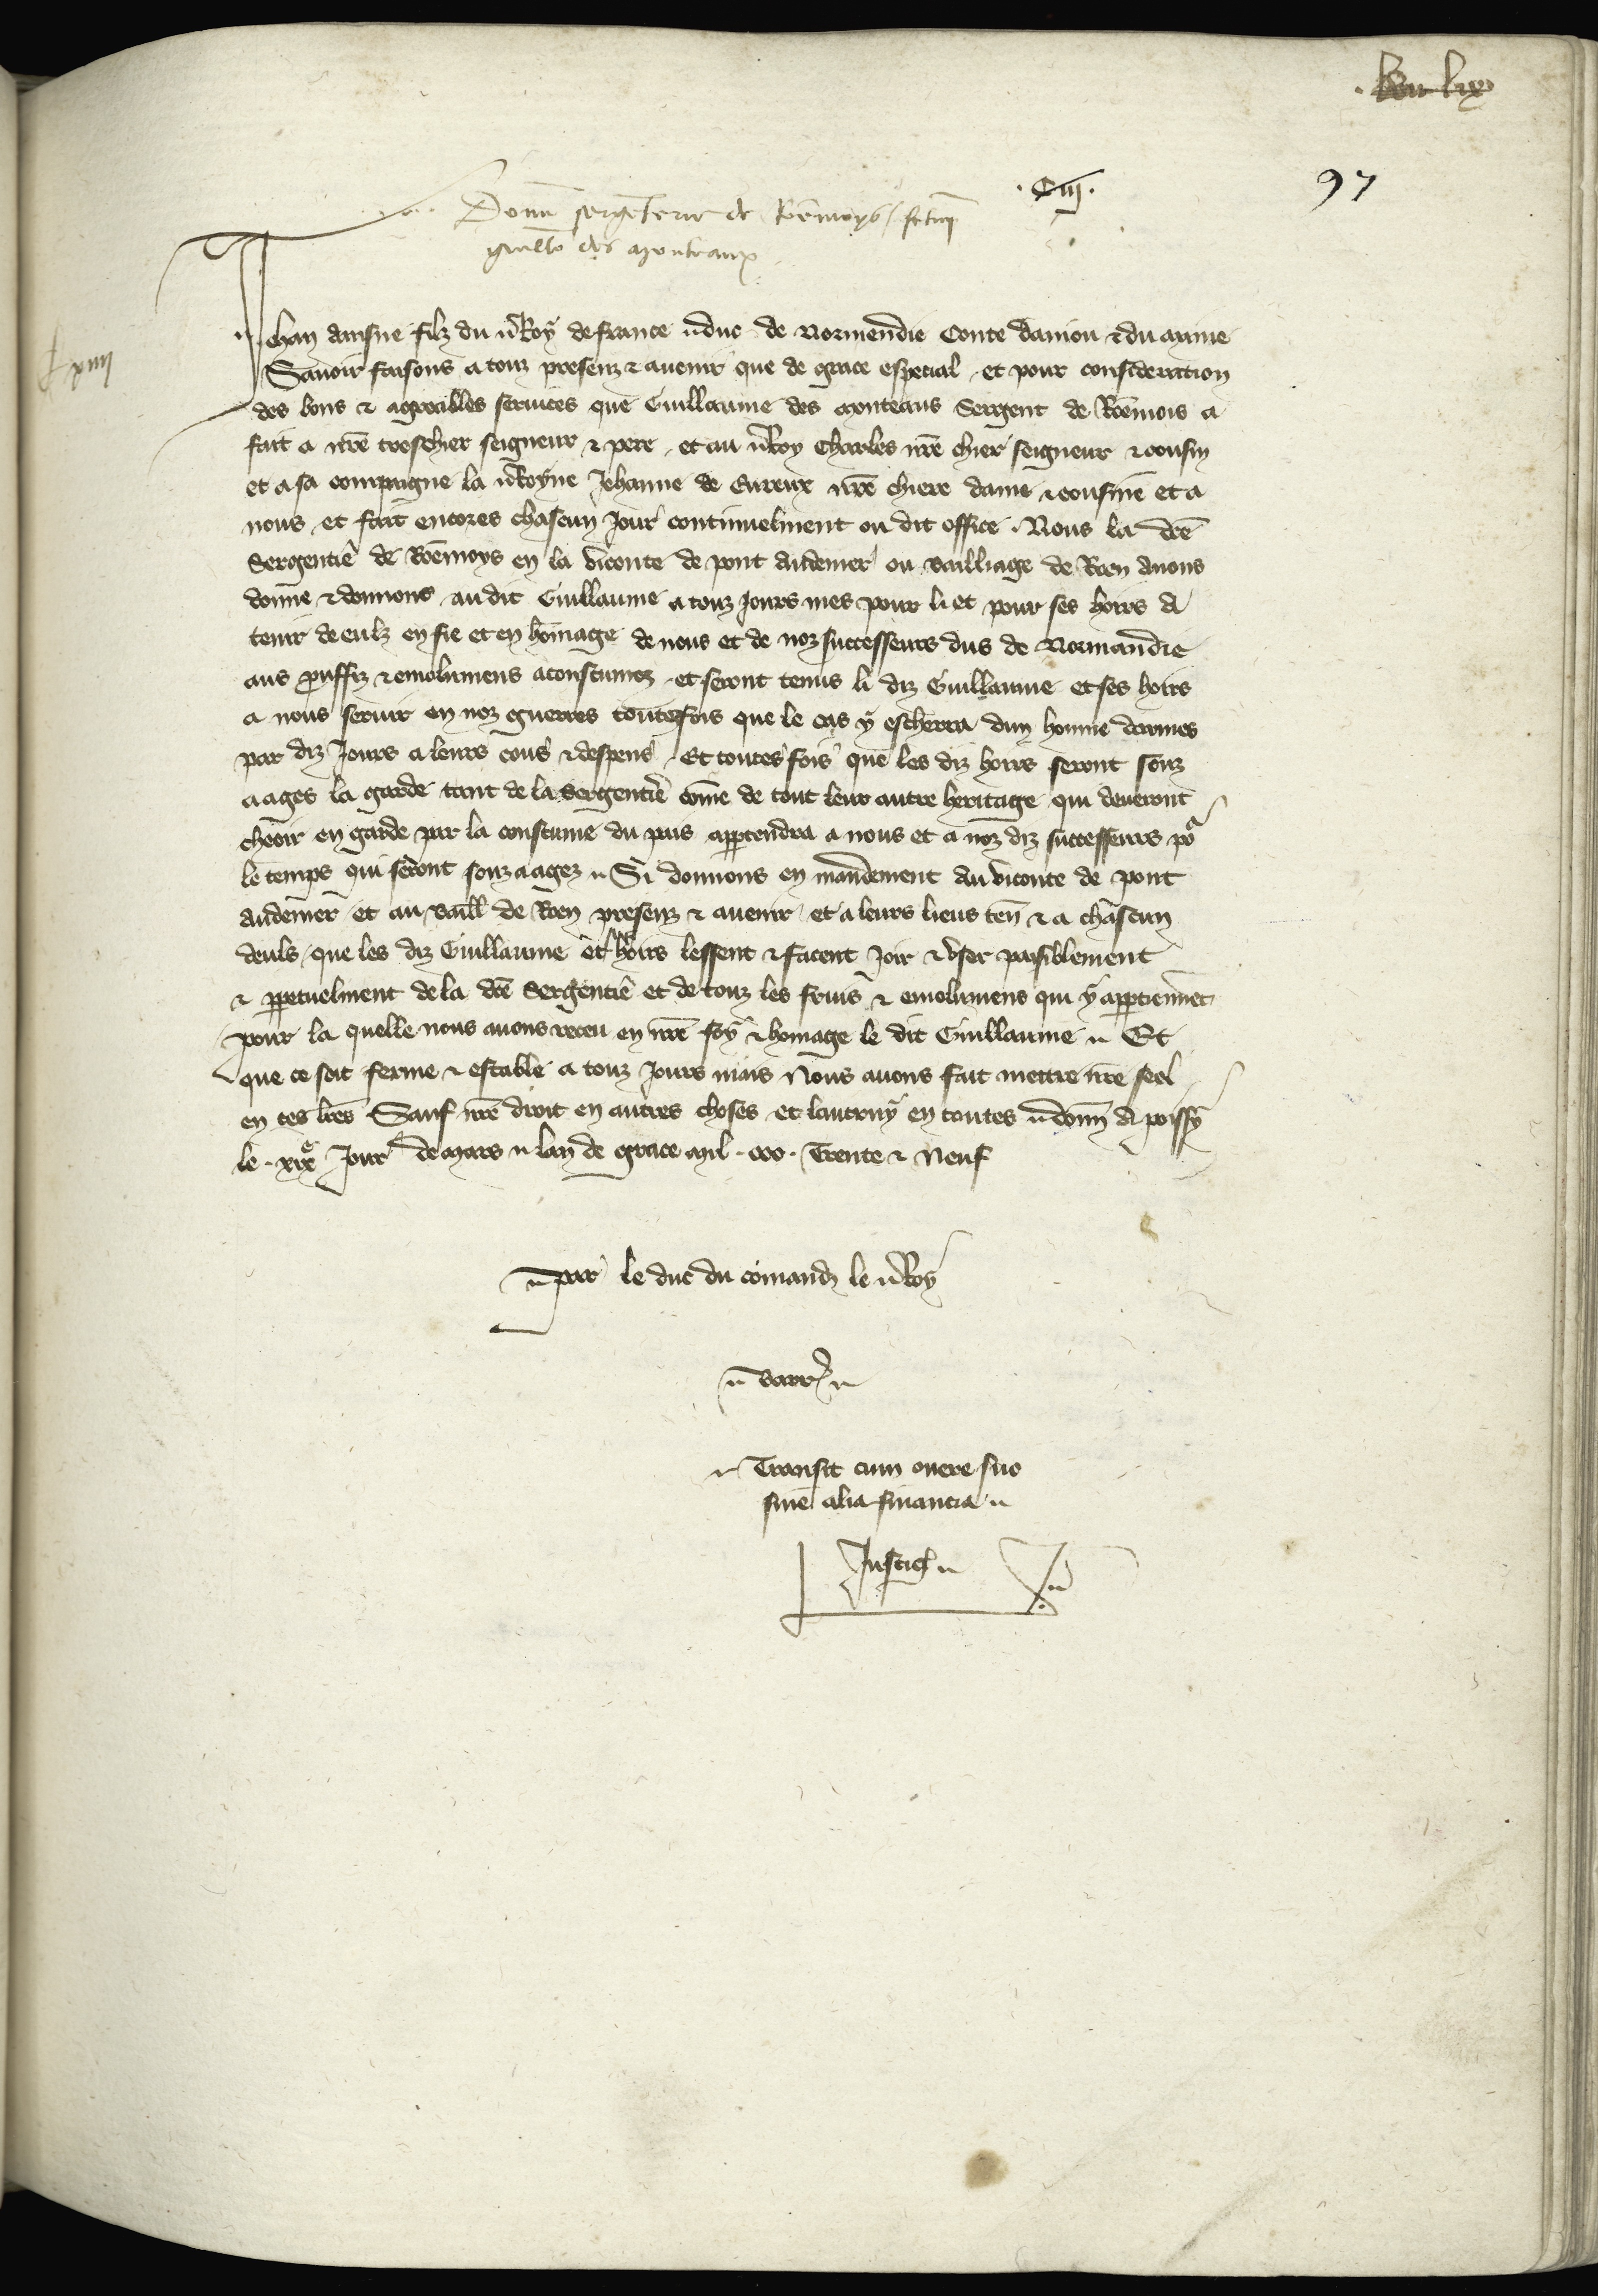 97
.Ciij.
Donū sergēterie de Roēmoys /
guillo des monteaux
Jehan ainsne filz du Roy de france duc de Normendie Conte daniou & du maine
Sauoir faisons a touz presenz & auenir que de grace especial et pour consideracion
des bons & agreables seruices que Guillaume des monteaus Sergent de Roēmois a
fait a nr̄e treschier seigneur & pere et au Roy Charles nr̄e chier seigneur & cousin
et a sa compaigne la Royne Jehanne de Eureux nr̄e chiere dame & cousine et a
nous et fait encores chascun Jour continuelment ou dit office . Nous la dc̄e
Sergentie de Roēmoys en la viconte de pont audemer ou bailliage de Roen auons
donne & donnons au dit Guillaume a touz Jours mes pour li et pour ses hoirs A
tenir de eulz en fie et en hōmage de nous et de noz successeurs dus de Normandie
aus prouffiz & emolumens acoustumez et seront tenus li diz Guillaume et ses hoirs
a nous seruir en noz guerres toutesfois que le cas y escherra dun homme darmes
par diz Jours a leurs cous & despens Et toutes fois que les diz hoirs seront souz
aages la garde tant de la Sergentie cōme de tout leur autre heritage qui deueront
cheoir en garde par la coustume du pais appartendra a nous et a noz diz successeurs po^r
le temps qui seront souz aagez Si donnons en mandement au viconte de pont
audemer et au baill de Roen presenz & auenir et a leurs lieus ten̄ & a chascun
deuls que les diz Guillaume et ses hoirs lessent & facent Joir & vser paisiblement
& perpetuelment de la dc̄e Sergentie et de touz les fruis & emolumens qui y appartiennēt
pour la quelle nous auons receu en nr̄e foy & homage le dit Guillaume Et
que ce soit ferme & estable a touz Jours mais Nous auons fait mettre nr̄e seel
en ces lr̄es Sauf nr̄e droit en autres choses et lautruy en toutes donn̄ A poissy
le .xix^e Jour de mars lan de grace mil .ccc. Trente & Neuf
par le duc du cōmand le Roy
Barr
Transit cum onere suo
sine alia financia
Justic